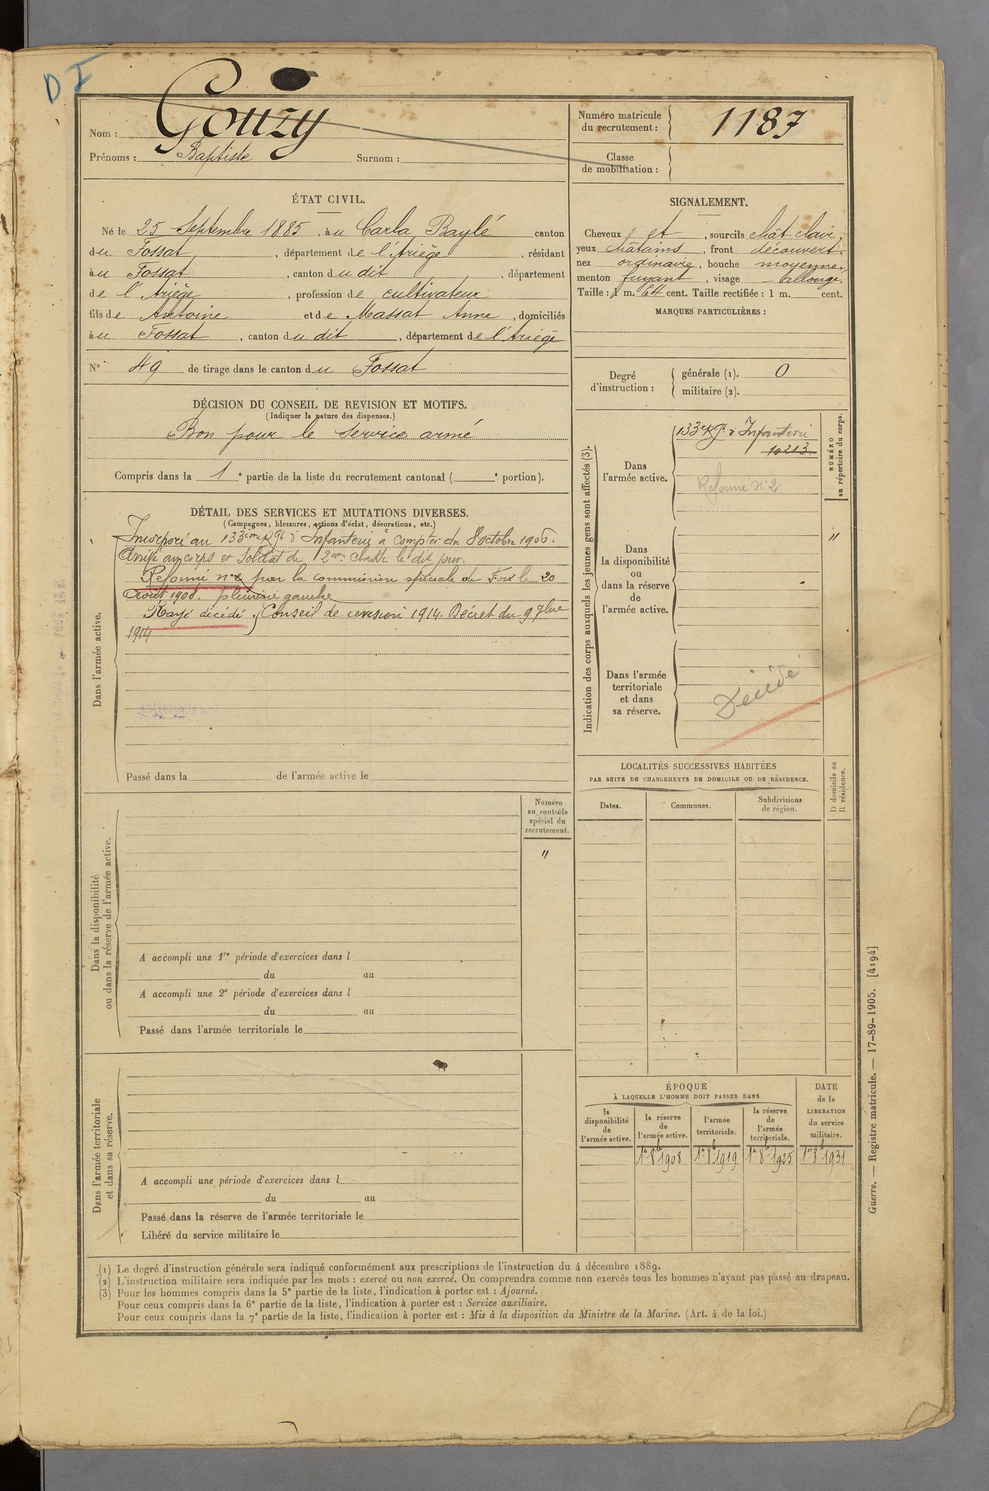 D I
Nom : Gouzy
Prénoms : Baptiste Surnom :
Numéro matricule du recrutement : 1187
Classe de mobilisation :
ÉTAT CIVIL.
Né le 25 Septembre 1885, àu Carla Baylé canton
du Fossat, département de l'Ariège, résidant
àu Fossat, canton du dit, département
de l'Ariège, profession de cultivateur
fils de Antoine et de Massat Anne, domiciliés
àu Fossat, canton du dit, département de l'Ariège
N° 49 de tirage dans le canton du Fossat
SIGNALEMENT.
Cheveux et, sourcils chât clair,
yeux châtains, front découvert,
nez ordinaire, bouche moyenne,
menton fuyant, visage allongé.
Taille : 1 m. 64 cent. Taille rectifiée : 1 m. cent.
MARQUES PARTICULIÈRES :
Degré d'instruction : générale (1). 0
militaire (2).
DÉCISION DU CONSEIL DE REVISION ET MOTIFS.
(Indiquer la nature des dispenses.)
Bon pour le Service armé
Compris dans la 1e partie de la liste du recrutement cantonal ( e portion).
DÉTAIL DES SERVICES ET MUTATIONS DIVERSES.
(Campagnes, blessures, actions d'éclat, décorations, etc.)
Dans l'armée active.
Incorporé au 133eme Rgt d'Infanterie à compter du 8 octobre 1906.
Arrivé au corps et Soldat de 2eme classe le dit jour.
Réformé n°2 par la commission spéciale de Foix le 20
Août 1908. pleurésie gauche
Rayé décédé. Conseil de revision 1914. Décret du 9 7bre
1914
Passé dans la de l'armée active le
Indication des corps auxquels les jeunes gens sont affectés (3).
NUMÉRO au répertoire du corps.
Dans l'armée active.
133e Rgt d'Infanterie
10213
Réforme N°2
Dans la disponibilité ou dans la réserve de l'armée active.
"
Dans l'armée territoriale et dans sa réserve.
Décédé
LOCALITÉS SUCCESSIVES HABITÉES
PAR SUITE DE CHANGEMENTS DE DOMICILE OU DE RÉSIDENCE.
Dates. Communes. Subdivisions de région. D domicile ou R résidence.
Dans la disponibilité ou dans la réserve de l'armée active.
Numéro au contrôle spécial du recrutement.
"
A accompli une 1re période d'exercices dans l
du au
A accompli une 2e période d'exercices dans l
du au
Passé dans l'armée territoriale le
Dans l'armée territoriale et dans sa réserve.
A accompli une période d'exercices dans l
du au
Passé dans la réserve de l'armée territoriale le
Libéré du service militaire le
ÉPOQUE
À LAQUELLE L'HOMME DOIT PASSER DANS
la disponibilité de l'armée active.
la réserve de l'armée active.
l'armée territoriale.
la réserve de l'armée territoriale.
DATE de la LIBÉRATION du service militaire.
1er 8b 1908 1er 8b 1919 1er 8b 1925 1er 8b 1931
Guerre. — Registre matricule. — 17-89-1905. [4194]
(1) Le degré d'instruction générale sera indiqué conformément aux prescriptions de l'instruction du 4 décembre 1889.
(2) L'instruction militaire sera indiquée par les mots : exercé ou non exercé. On comprendra comme non exercés tous les hommes n'ayant pas passé au drapeau.
(3) Pour les hommes compris dans la 5e partie de la liste, l'indication à porter est : Ajourné.
Pour ceux compris dans la 6e partie de la liste, l'indication à porter est : Service auxiliaire.
Pour ceux compris dans la 7e partie de la liste, l'indication à porter est : Mis à la disposition du Ministre de la Marine. (Art. 4 de la loi.)